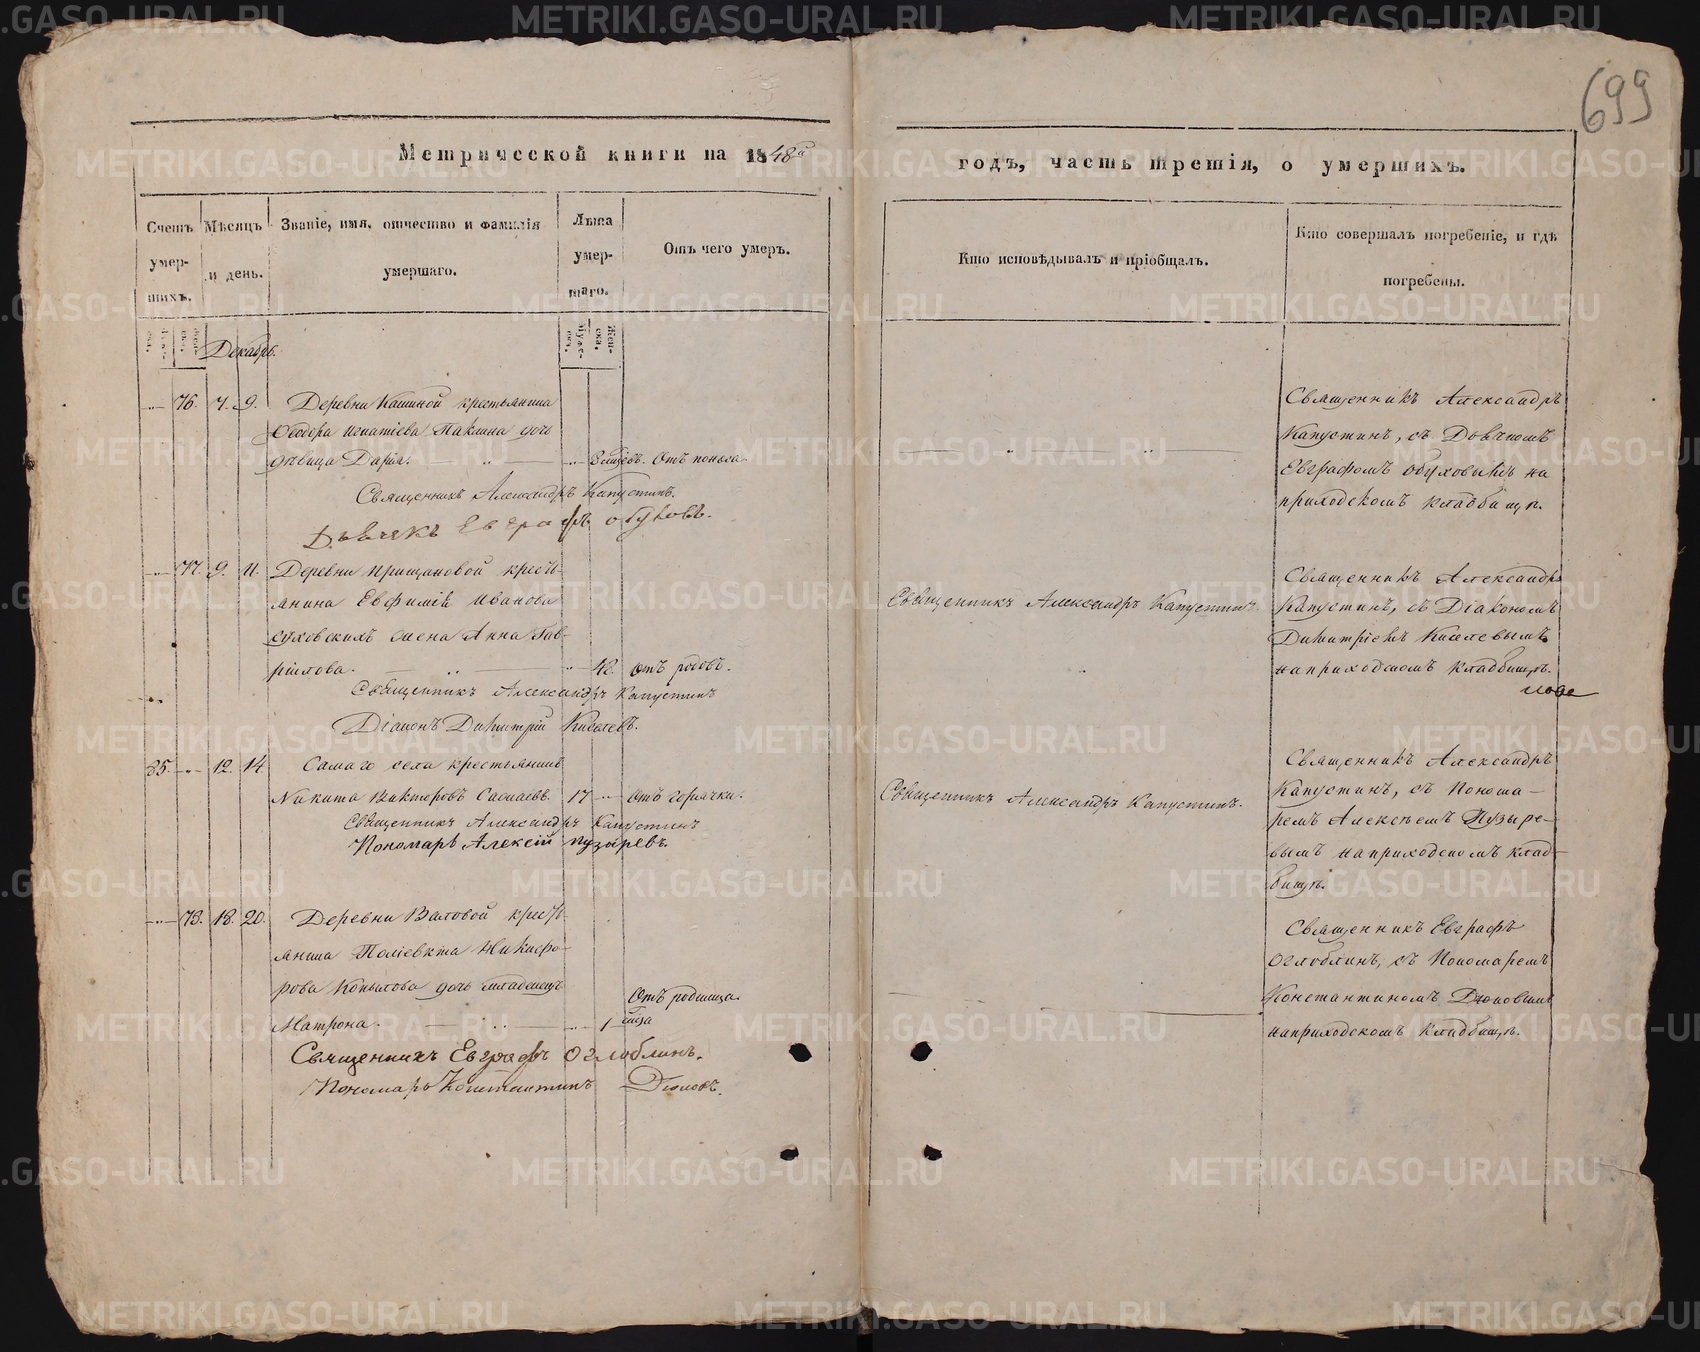 699
Метрической книги на 1848й
годъ, часть третія, о умершихъ.
Счетъ умер-шихъ.
Мѣсяцъ и день.
Званіе, имя, отчество и фамилія умершаго.
Лѣта умер-шаго.
Отъ чего умеръ.
Кто исповѣдывалъ и пріобщалъ.
Кто совершалъ погребеніе, и гдѣ погребены.
Декабрь.
76. 7. 9. Деревни Кашиной крестьянина
Ѳеодора Игнатіева Паклина дочь
дѣвица Дарія.
Отъ поноса.
Священникъ Александръ Капустинъ.
Дьячекъ Евграфъ Обуховъ.
Священникъ Александръ
Капустинъ, съ Дьячкомъ
Евграфомъ Обуховымъ на
приходскомъ кладбищѣ.
77. 9. 11. Деревни
крестьянина Евфимія Иванова
Суховскихъ жена Анна Гав-
рилова.
42. Отъ родовъ.
Священникъ Александръ Капустинъ
Діаконъ Димитрій Киселевъ.
Священникъ Александръ Капустинъ.
Священникъ Александръ
Капустинъ, съ Діакономъ
Димитріемъ Киселевымъ
на приходскомъ кладбищѣ.
85. 12. 14. Самаго села крестьянинъ
Никита Викторовъ
17 Отъ горячки.
Священникъ Александръ Капустинъ
Пономарь Алексій Пузыревъ.
Священникъ Александръ Капустинъ.
Священникъ Александръ
Капустинъ, съ Понома-
ремъ Алексѣемъ Пузыре-
вымъ на приходскомъ клад-
бищѣ.
78. 18. 20. Деревни Валовой кресть-
янина Поліевкта Никифо-
рова Копылова дочь младенецъ
Матрона.
1 Отъ родимца.
Священникъ Евграфъ Оглоблинъ.
Пономарь Константинъ
Священникъ Евграфъ
Оглоблинъ, съ Пономаремъ
Константиномъ
на приходскомъ кладбищѣ.
METRIKI.GASO-URAL.RU